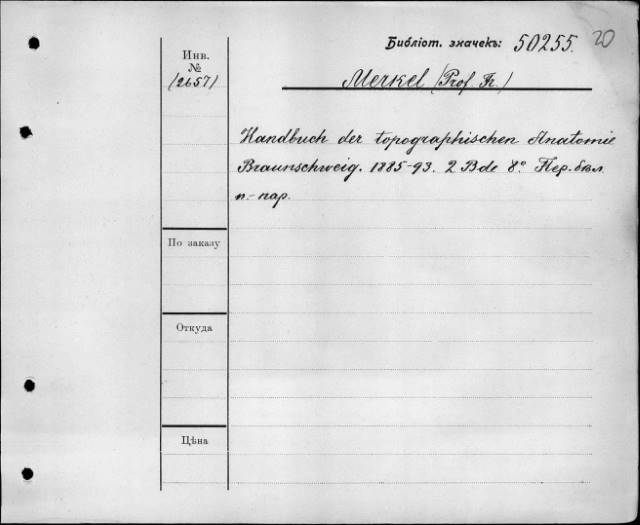 Библіот. значекъ: 50255. 20
Инв.
№
(2657)
Merkel (Prof. Fr.)
Handbuch der topographischen Anatomie
Braunschweig. 1885-93. 2 Bde 8° Пер. бѣл.
п.-пар.
По заказу
Откуда
Цѣна